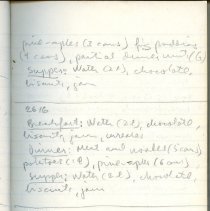 pineapples (3 cans), fig pudding
(4 cans), partial dinner unit (6)
Supper: Water (2 l), chocolate,
biscuits, jam
2616
Breakfast: Water (2 l), chocolate,
biscuits, jam,
Dinner: Meat and noodles (5 cans)
potatoes (1 @), pineapples (6 cans)
Supper: Water (2 l), chocolate,
biscuits, jam